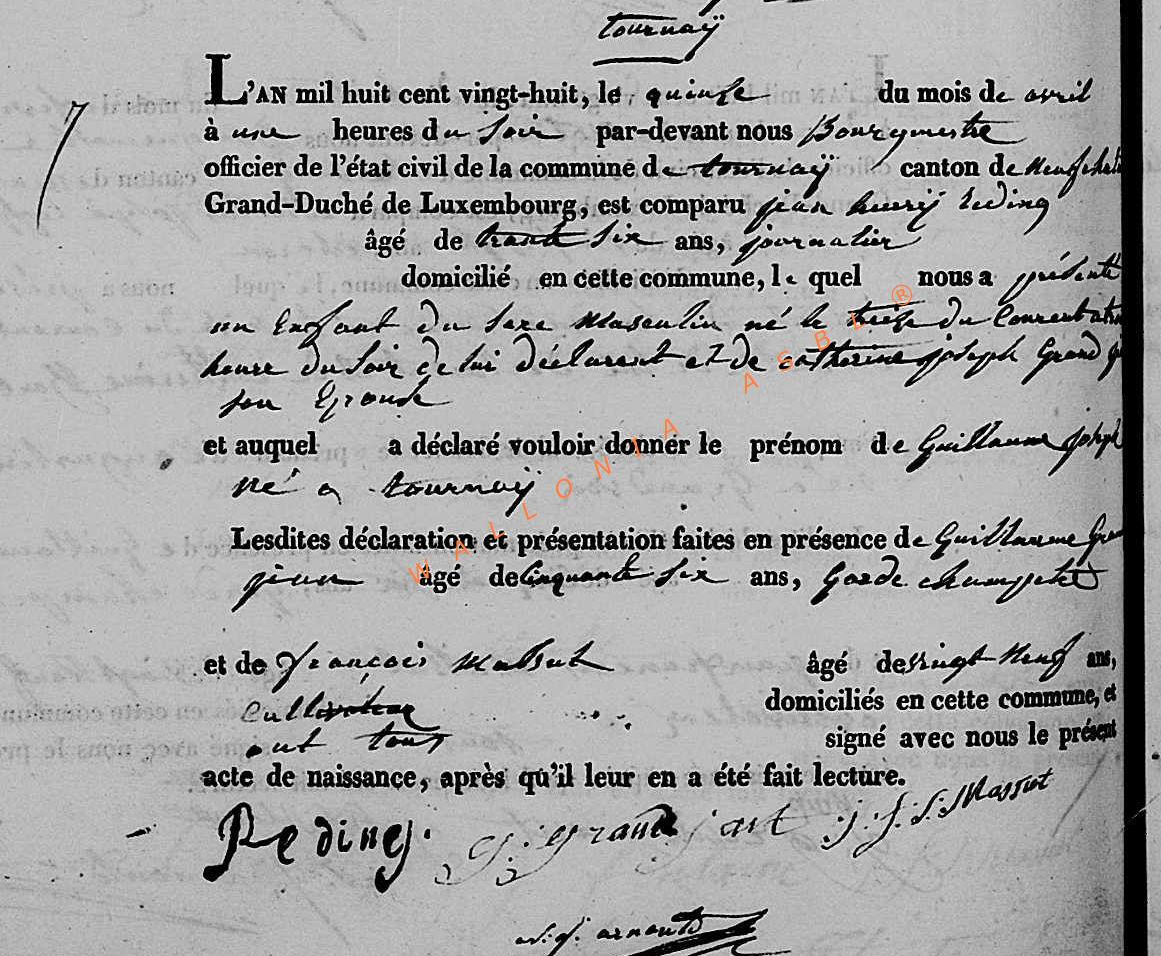 tournaÿ
7
L'AN mil huit cent vingt-huit, le quinze du mois de avril
à une heures du soir par-devant nous Bourgmestre
officier de l'état civil de la commune de tournaÿ canton de neufchat
Grand-Duché de Luxembourg, est comparu jean henrÿ Reding
âgé de trante six ans, journalier
domicilié en cette commune, le quel nous a présenté
un Enfant du Sexe Masculin né le treize du Courent a
heure du soir de lui déclarent et de catherine joseph Grand
son Epouse
et auquel a déclaré vouloir donner le prénom de Guillaume joseph
né a tournaÿ
Lesdites déclaration et présentation faites en présence de Guillaume Gran
jean âgé de Cinquante six ans, Garde champetre
et de françois Massut âgé de vingt neuf ans,
Cultivateur domiciliés en cette commune, et
ont tous signé avec nous le présent
acte de naissance, après qu'il leur en a été fait lecture.
Reding. G: Grand jant j: f: S: Massut
arnould
WALLONIA ASBL ®